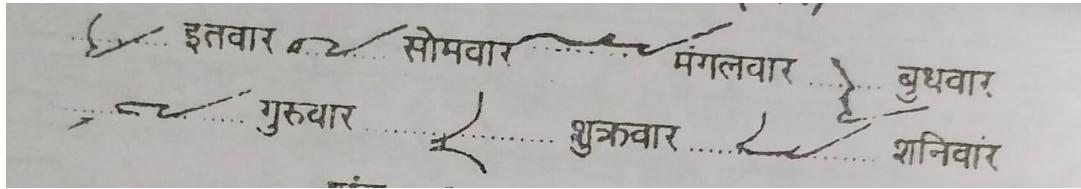 इतवार सोमवार मंगलवार बुधवार
गुरुवार शुक्रवार शनिवार